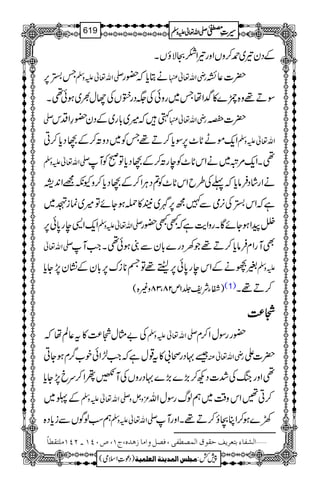 سیرتِ مصطفی صلی اللہ تعالیٰ علیہ وسلم 619
کے دن تیری حمد کروں اور تیرا شکر بجا لاؤں۔
حضرت عائشہ رضی اللہ تعالیٰ عنہا نے بتایا کہ حضور صلی اللہ تعالیٰ علیہ وسلم جس بستر پر
سوتے تھے وہ چمڑے کا گدا تھا جس میں روئی کی جگہ درختوں کی چھال بھری ہوئی تھی۔
حضرت حفصہ رضی اللہ تعالیٰ عنہا کہتی ہیں کہ میری باری کے دن حضور اقدس صلی
اللہ تعالیٰ علیہ وسلم ایک موٹے ٹاٹ پر سویا کرتے تھے جس کو میں دو تہ کرکے بچھا دیا کرتی
تھی۔ ایک مرتبہ میں نے اس ٹاٹ کو چار تہ کرکے بچھا دیا تو صبح کو آپ صلی اللہ تعالیٰ علیہ وسلم
نے ارشاد فرمایا کہ پہلے کی طرح اس ٹاٹ کو تم دہرا کرکے بچھا دیا کرو کیونکہ مجھے اندیشہ
ہے کہ اس بستر کی نرمی سے کہیں مجھ پر گہری نیند کا حملہ ہو جائے تو میری نماز تہجد میں
خلل پیدا ہو جائے گا۔ روایت ہے کہ کبھی کبھی حضور صلی اللہ تعالیٰ علیہ وسلم ایک ایسی چارپائی پر
بھی آرام فرمایا کرتے تھے جو کھردرے بان سے بنی ہوئی تھی۔ جب آپ صلی اللہ تعالیٰ
علیہ وسلم بغیر بچھونے کے اس چارپائی پر لیٹتے تھے تو جسم نازک پر بان کے نشان پڑ جایا
کرتے تھے۔ (1) (شفاء شریف جلد ۱ ص ۸۲، ۸۳ وغیرہ)
شجاعت
حضور رسول اکرم صلی اللہ تعالیٰ علیہ وسلم کی بے مثال شجاعت کا یہ عالم تھا کہ
حضرت علی رضی اللہ تعالیٰ عنہ جیسے بہادر صحابی کا یہ قول ہے کہ جب لڑائی خوب گرم ہو جاتی
تھی اور جنگ کی شدت دیکھ کر بڑے بڑے بہادروں کی آنکھیں پتھرا کر سرخ پڑ جایا
کرتی تھیں اس وقت میں ہم لوگ رسول اللہ عزوجل وصلی اللہ تعالیٰ علیہ وسلم کے پہلو میں
کھڑے ہو کر اپنا بچاؤ کرتے تھے۔ اور آپ صلی اللہ تعالیٰ علیہ وسلم ہم سب لوگوں سے زیادہ
الشفاء بتعریف حقوق المصطفی، فصل واما زہدہ، ج۱، ص ۱۴۰۔۱۴۲ ملتقطاً
پیش کش: مجلس المدینۃ العلمیۃ (دعوتِ اسلامی)